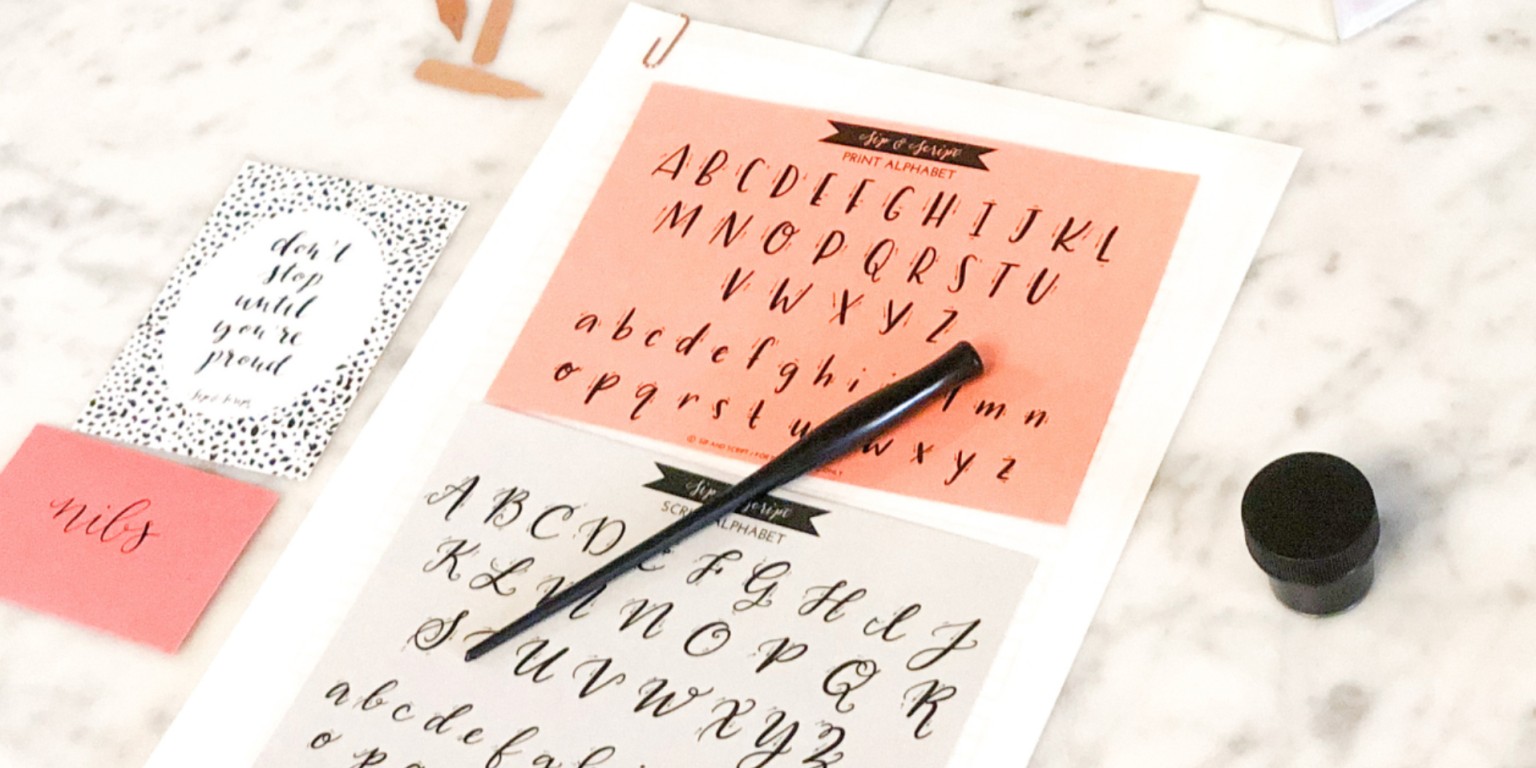 don't
stop
until
you're
proud
nibs
Sip & Script
PRINT ALPHABET
A B C D E F G H I J K L
M N O P Q R S T U
V W X Y Z
a b c d e f g h i l m n
o p q r s t u w x y z
© SIP AND SCRIPT | FOR
Sip Script
SCRIPT ALPHABET
A B C D E F G H I J
K L M N O P Q R
S T U V W X Y Z
a b c d e f g h
o p q